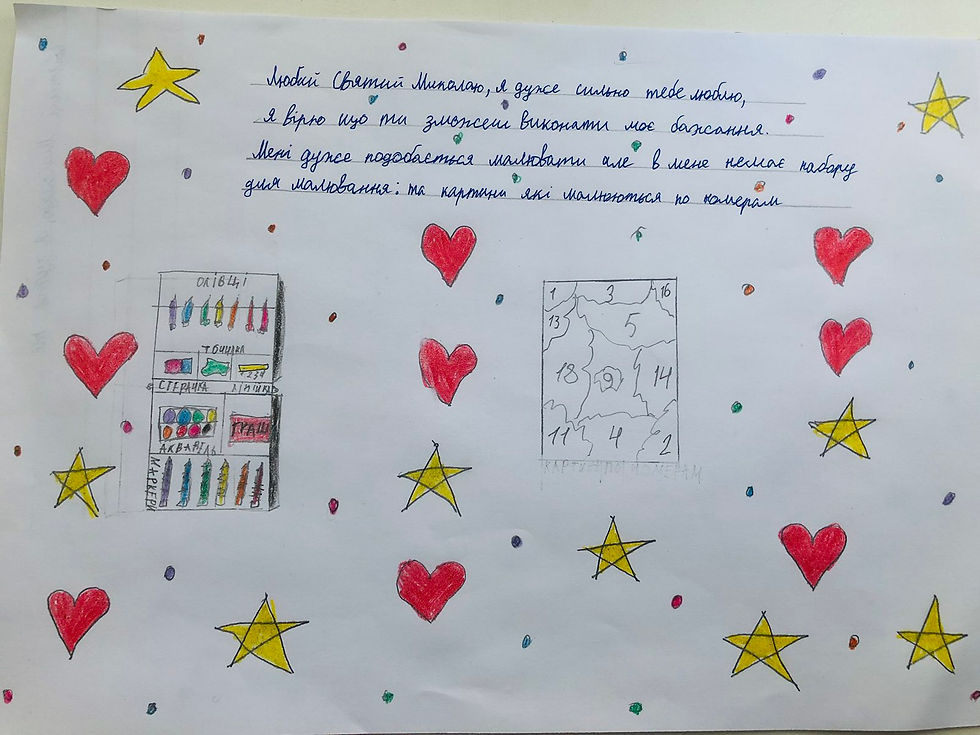 Любий Святий Миколаю, я дуже сильно тебе люблю,
я вірю що ти зможеш виконати моє бажання.
Мені дуже подобається малювати але в мене немає набору
для малювання: та картини які малюються по номерам
ОЛІВЦІ
ТОЧИЛКА
1234
СТЕРАЧКА ЛІНІЙКА
ГУАШ
АКВАРЕЛЬ
МАРКЕРИ
1 3 16
13 5
18 9 14
11 4 2
КАРТИНА ПО НОМЕРАМ